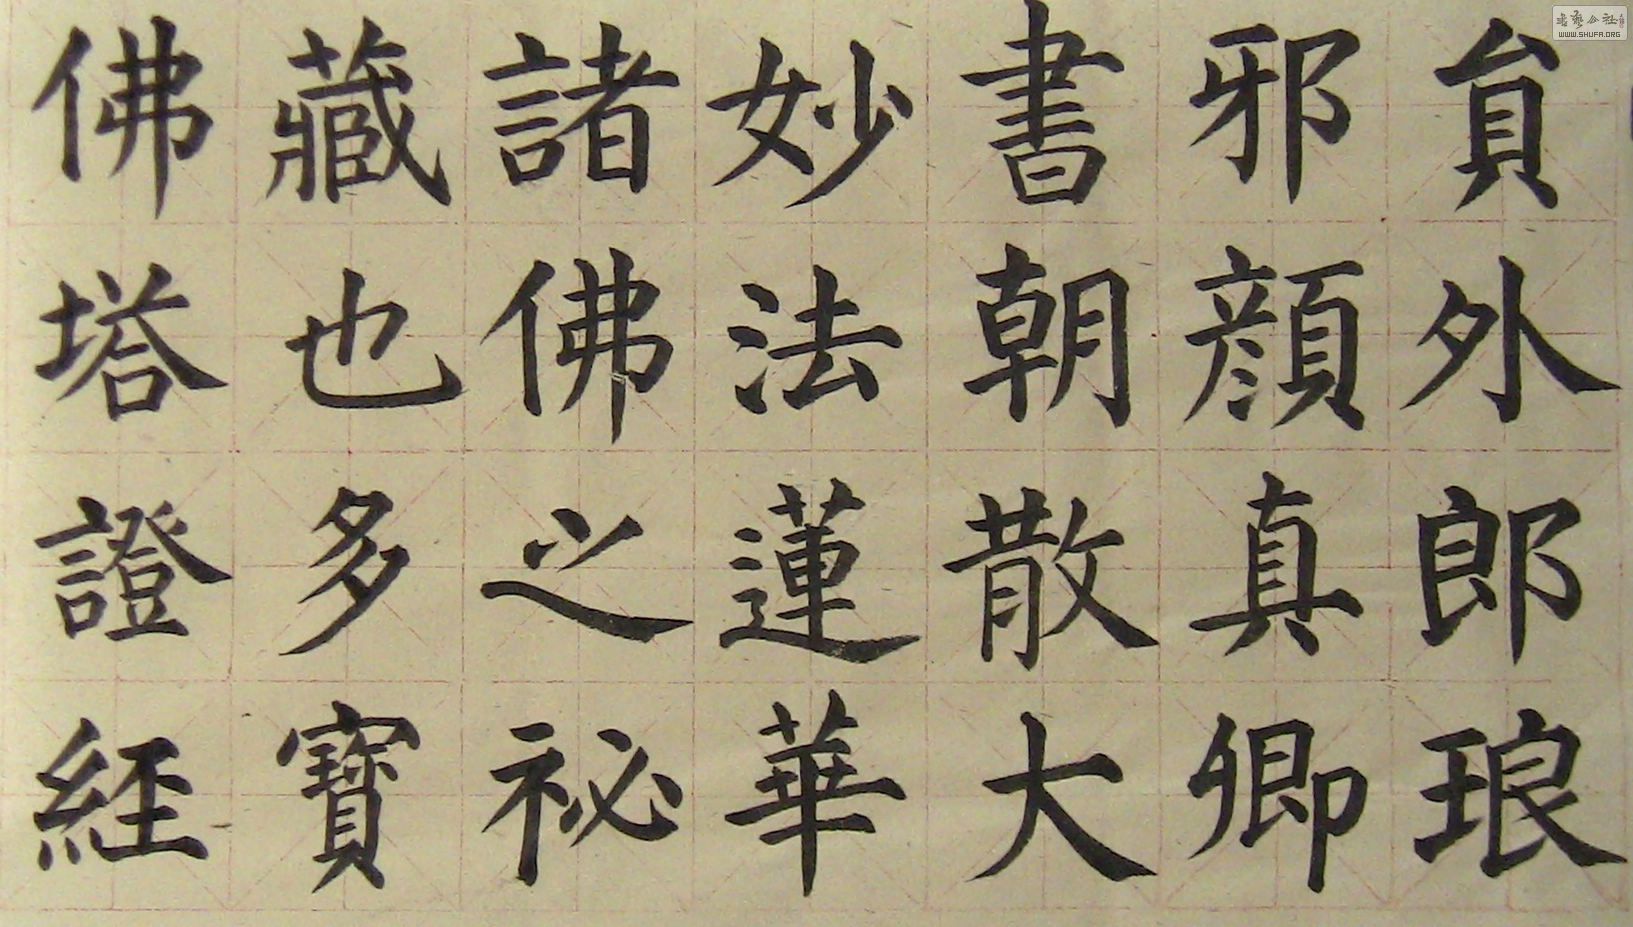 員外郎琅
邪顔真卿
書朝散大
妙法蓮華
諸佛之祕
藏也多寶
佛塔證經
WWW.SHUFA.ORG